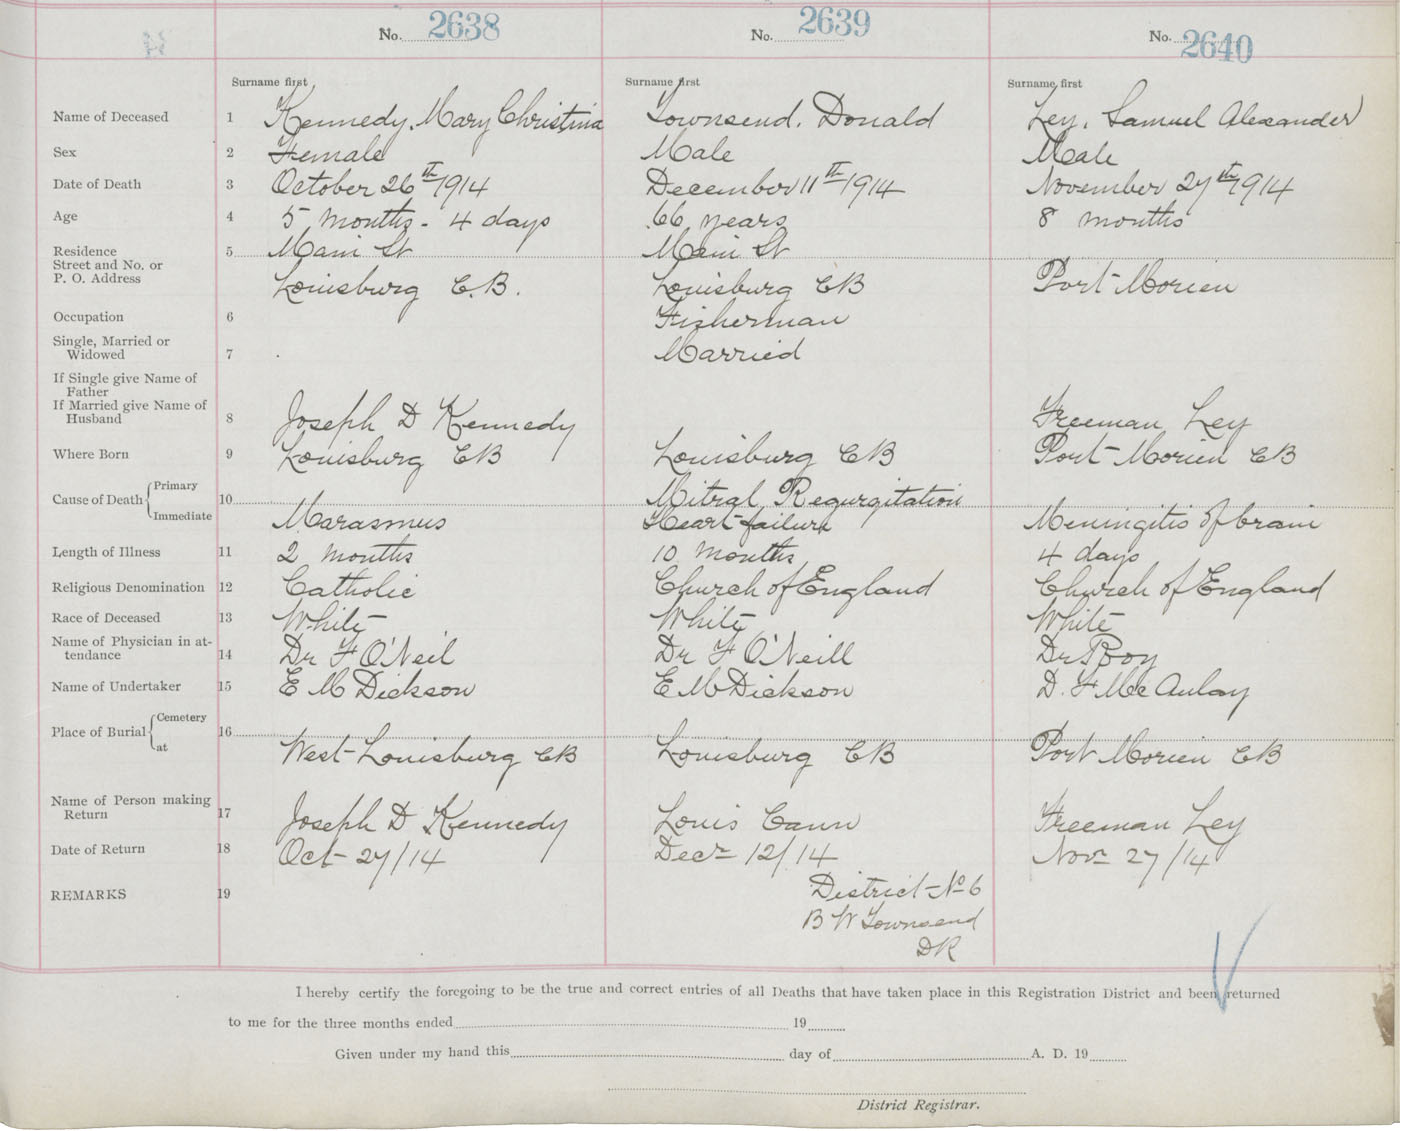 No. 2638 No. 2639 No. 2640
Surname first Surname first Surname first
Name of Deceased 1 Kennedy, Mary Christina Townsend, Donald Ley, Samuel Alexander
Sex 2 Female Male Male
Date of Death 3 October 26th 1914 December 11th 1914 November 27th 1914
Age 4 5 months - 4 days 66 years 8 months
Residence 5 Main St Main St
Street and No. or
P. O. Address Louisburg C.B. Louisburg CB Port Morien
Occupation 6 Fisherman
Single, Married or
Widowed 7 Married
If Single give Name of
Father
If Married give Name of
Husband 8 Joseph D Kennedy Freeman Ley
Where Born 9 Louisburg CB Louisburg CB Port Morien CB
Cause of Death Primary 10 Mitral Regurgitation
Immediate Marasmus Heart failure Meningitis of brain
Length of Illness 11 2 months 10 months 4 days
Religious Denomination 12 Catholic Church of England Church of England
Race of Deceased 13 White White White
Name of Physician in at-
tendance 14 Dr F O'Neil Dr F O'Neill Dr Roy
Name of Undertaker 15 E M Dickson E M Dickson D. F McAulay
Place of Burial Cemetery 16
at West Louisburg CB Louisburg CB Port Morien CB
Name of Person making
Return 17 Joseph D Kennedy Louis Cann Freeman Ley
Date of Return 18 Oct 27/14 Decr 12/14 Novr 27/14
REMARKS 19 District No 6
B W Townsend
DR
I hereby certify the foregoing to be the true and correct entries of all Deaths that have taken place in this Registration District and been returned
to me for the three months ended 19
Given under my hand this day of A. D. 19
District Registrar.